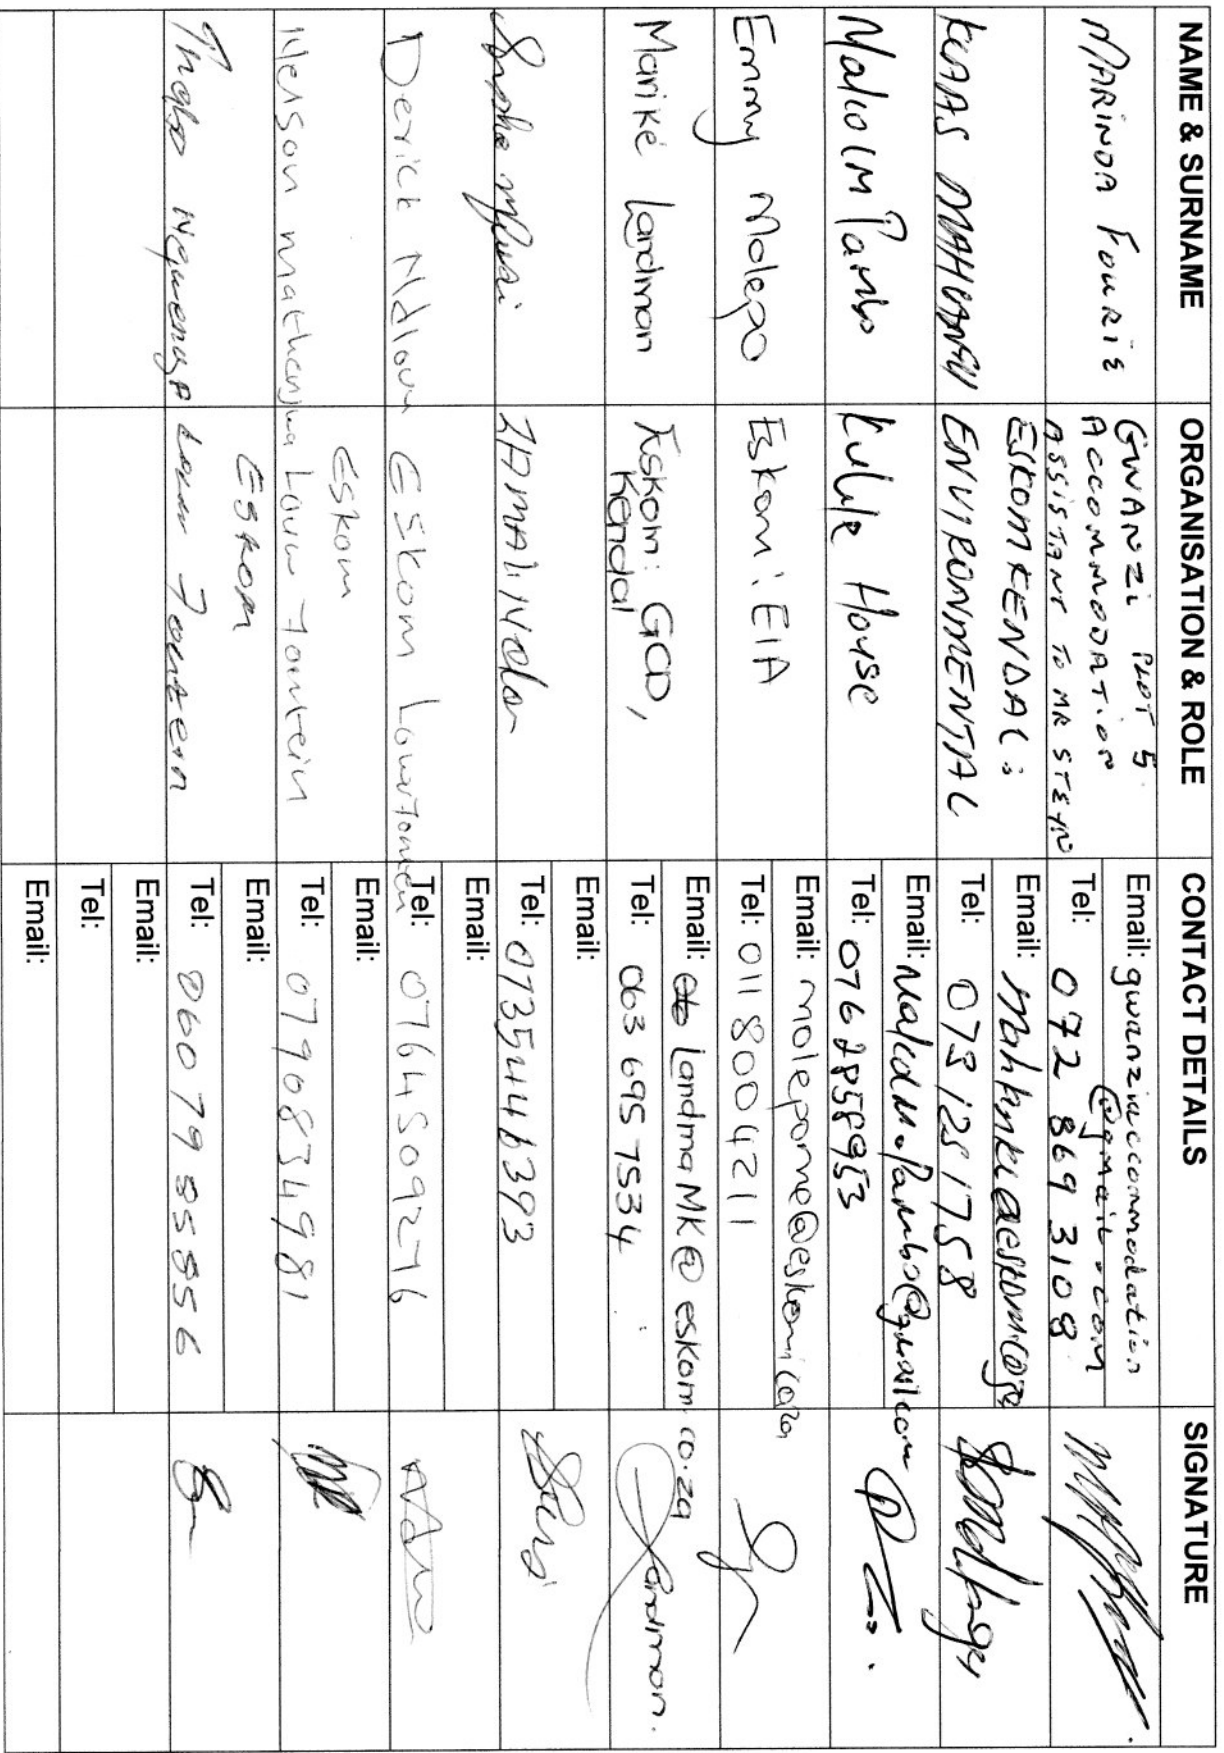 NAME & SURNAME
ORGANISATION & ROLE
CONTACT DETAILS
SIGNATURE
MARINDA FOURIE
GWANZI PLOT 5
ACCOMMODATION
ASSISTANT TO MR STEYN
Email: gwanziaccommodation
@gmail.com
Tel: 072 869 3108
KLAAS
ESKOM KENDAL:
ENVIRONMENTAL
Email:
Tel: 073 125 1758
Malcolm Pambo
House
Email: Malcolm.Pambo@gmail.com
Tel: 076
Emmy Molepo
Eskom: EIA
Email: molepome@eskom.co.za
Tel: 011 800 4211
Mariké Landman
Eskom: GCD,
Kendal
Email: landmaMK@eskom.co.za
Tel: 063 695 7534
Landman.
Email:
Tel: 07354446393
Derick Ndlovu
Eskom
Email:
Tel: 0764509276
Nelson
Eskom
Email:
Tel: 0790834981
Thabo
Eskom
Email:
Tel: 0607985856
Email:
Tel:
Email: